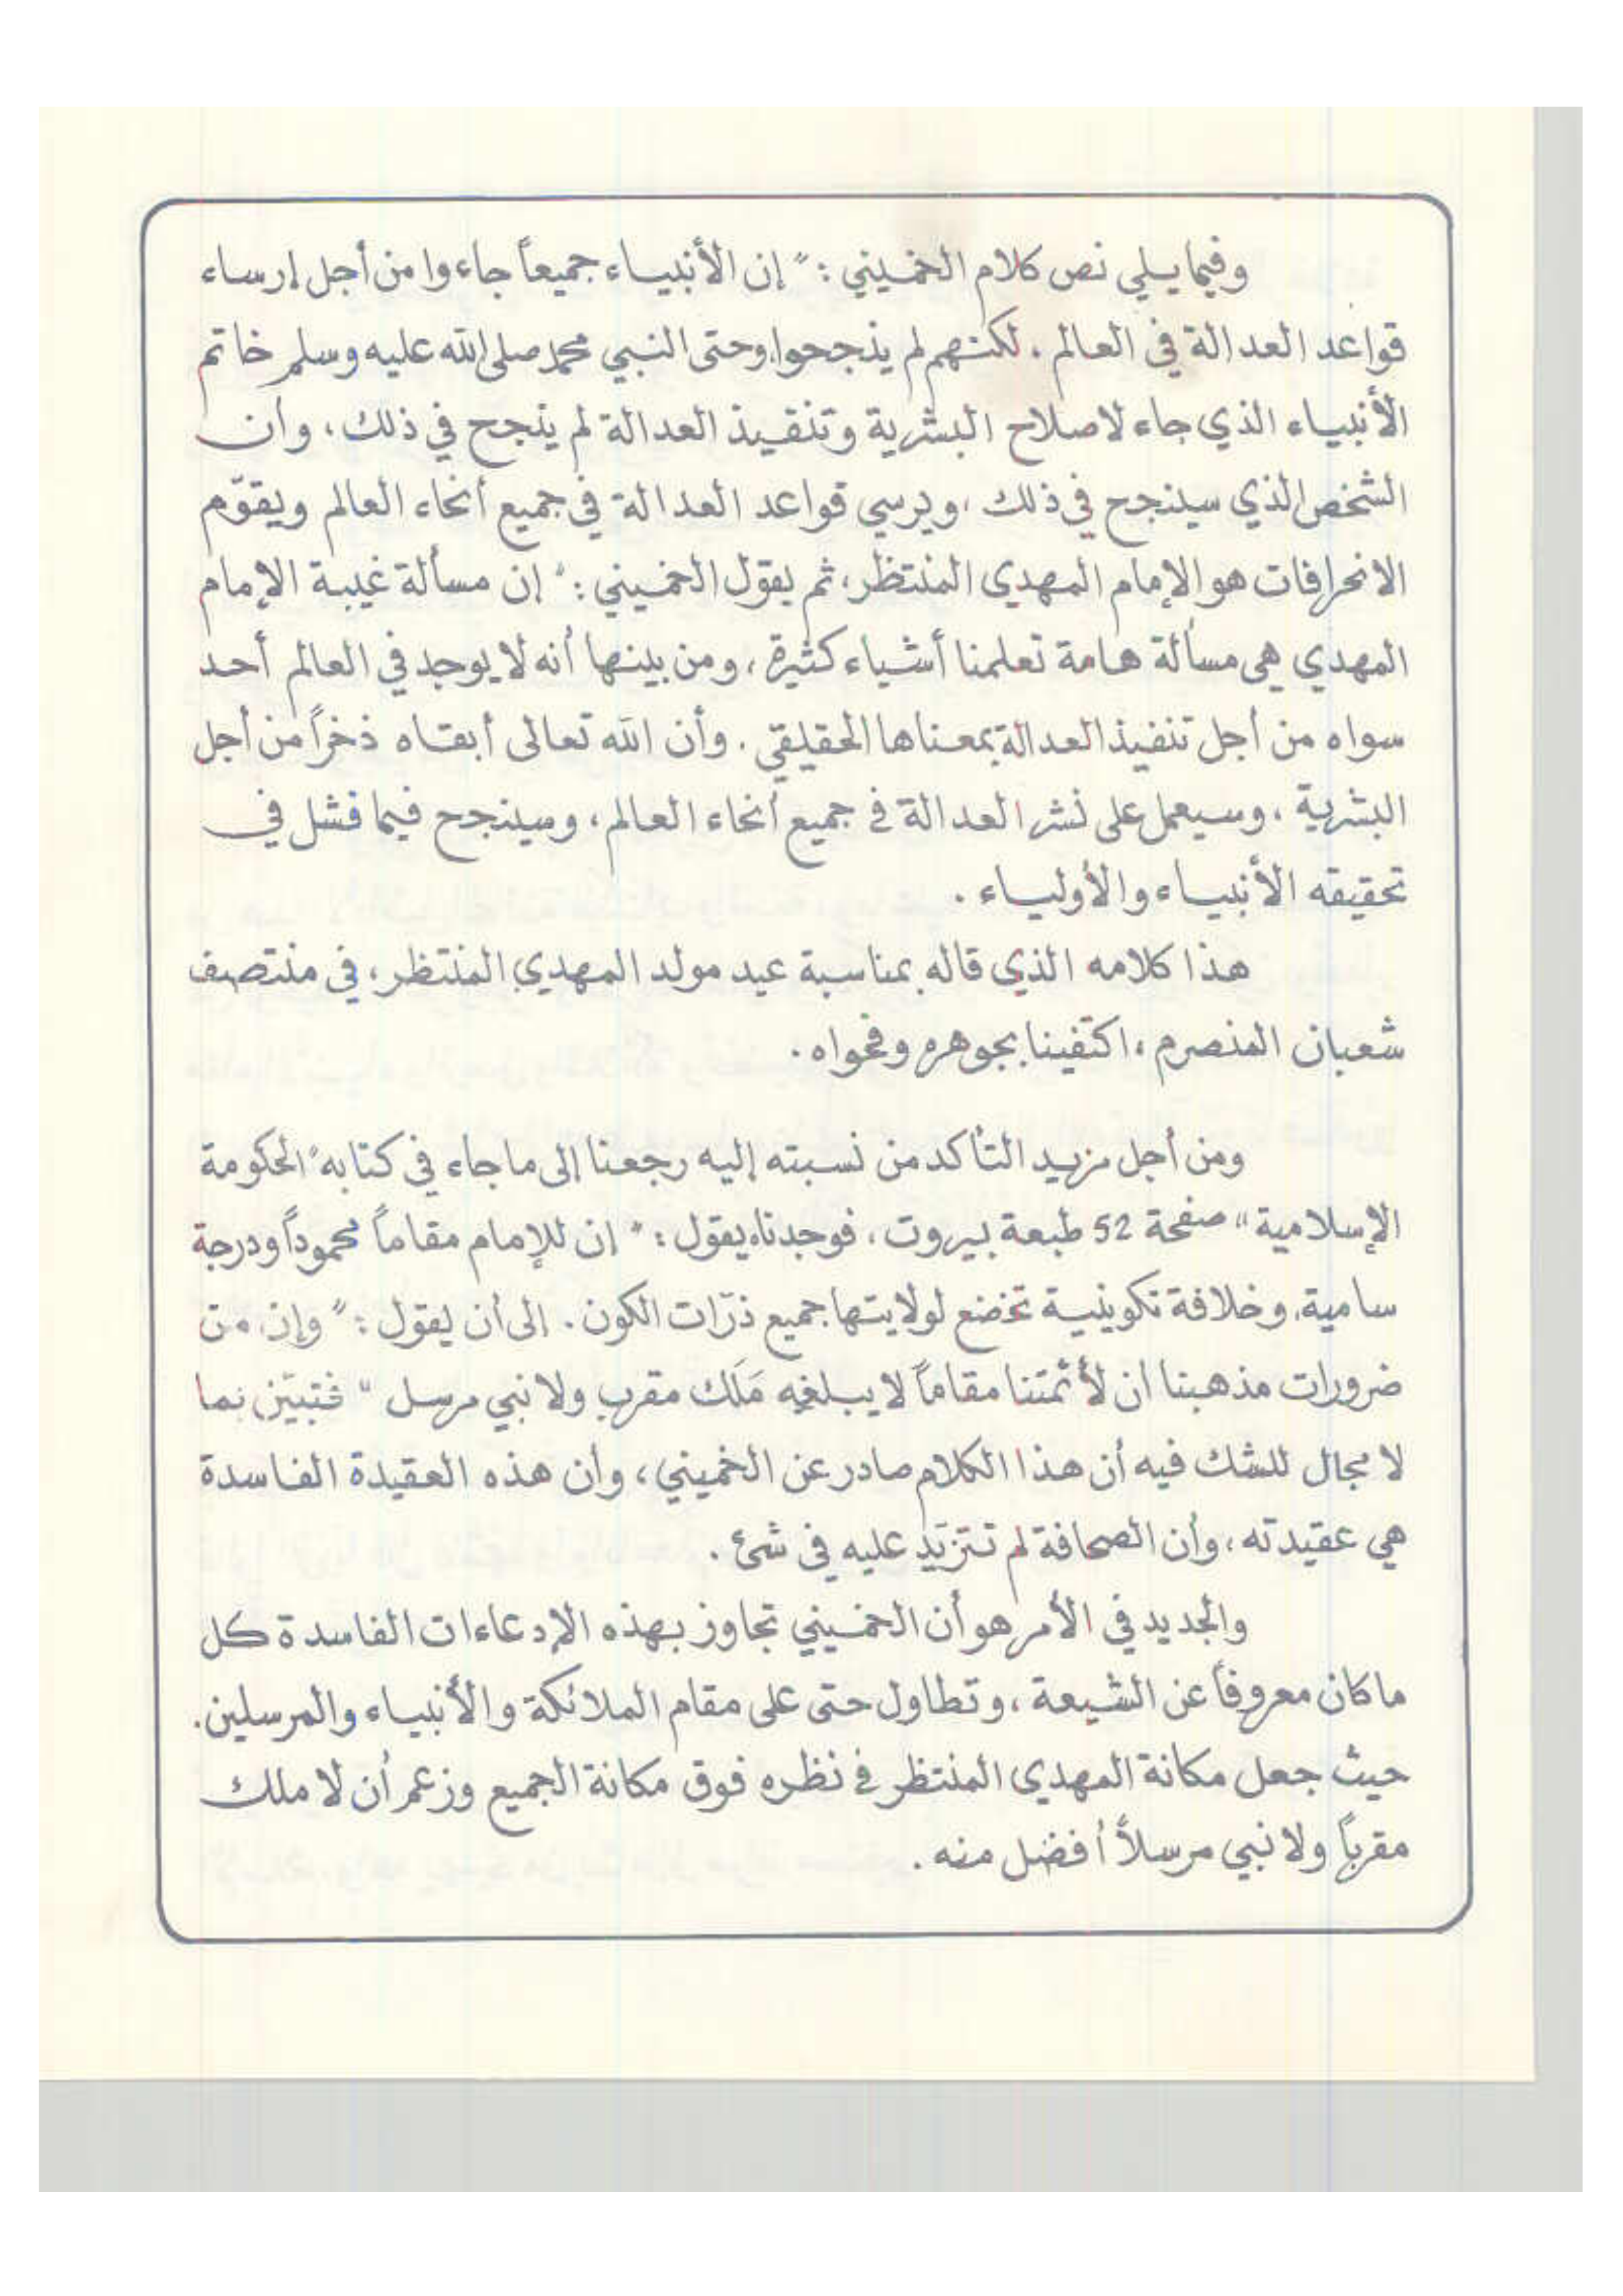 وفيما يلي نص كلام الخميني : " إن الأنبياء جميعاً جاءوا من أجل إرساء
قواعد العدالة في العالم . لكنهم لم ينجحوا، وحتى النبي محمد صلى الله عليه وسلم خاتم
الأنبياء الذي جاء لاصلاح البشرية وتنفيذ العدالة لم ينجح في ذلك ، وان
الشخص الذي سينجح في ذلك ، ويرسي قواعد العدالة في جميع أنحاء العالم ويقوّم
الانحرافات هو الإمام المهدي المنتظر، ثم يقول الخميني : " إن مسألة غيبة الإمام
المهدي هي مسألة هامة تعلمنا أشياء كثيرة ، ومن بينها أنه لا يوجد في العالم أحد
سواه من أجل تنفيذ العدالة بمعناها الحقيقي . وأن الله تعالى أبقاه ذخراً من أجل
البشرية ، وسيعمل على نشر العدالة في جميع أنحاء العالم ، وسينجح فيما فشل في
تحقيقه الأنبياء والأولياء .
هذا كلامه الذي قاله بمناسبة عيد مولد المهدي المنتظر، في منتصف
شعبان المنصرم ، اكتفينا بجوهره وفحواه .
ومن أجل مزيد التأكد من نسبته إليه رجعنا إلى ما جاء في كتابه " الحكومة
الإسلامية " صفحة 52 طبعة بيروت ، فوجدناه يقول : " إن للإمام مقاماً محموداً ودرجة
سامية، وخلافة تكوينية تخضع لولايتها جميع ذرّات الكون . إلى أن يقول : " وإن من
ضرورات مذهبنا ان لأئمتنا مقاماً لا يبلغه مَلَك مقرب ولا نبي مرسل " فتبيّن بما
لا مجال للشك فيه أن هذا الكلام صادر عن الخميني ، وأن هذه العقيدة الفاسدة
هي عقيدته ، وأن الصحافة لم تتزيّد عليه في شئ .
والجديد في الأمر هو أن الخميني تجاوز بهذه الإدعاءات الفاسدة كل
ما كان معروفاً عن الشيعة ، وتطاول حتى على مقام الملائكة والأنبياء والمرسلين .
حيث جعل مكانة المهدي المنتظر في نظره فوق مكانة الجميع وزعم أن لا ملك
مقرباً ولا نبي مرسلاً أفضل منه .